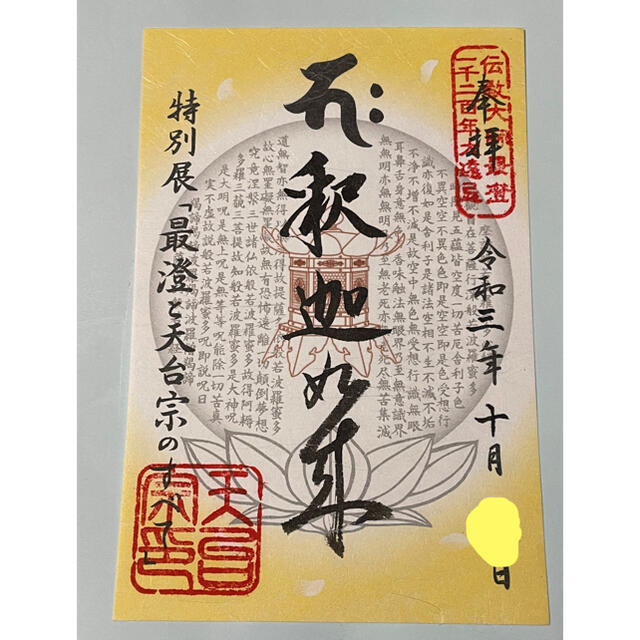 伝教大師最澄
一千二百年大遠忌
奉拝 令和三年十月 日
釈迦如来
特別展「最澄と天台宗のすべて」
天台
宗印
在菩薩行深般若波羅蜜多
見五蘊皆空度一切苦厄舎利子色
不異空空不異色色即是空空即是色受想行
識亦復如是舎利子是諸法空相不生不滅不垢
不浄不増不減是故空中無色無受想行識無眼
耳鼻舌身意無色声香味触法無眼界乃至無意識界
無無明亦無無明尽乃至無老死亦無老死尽無苦集滅
道無智亦無得以無所得故菩提薩埵依般若波羅蜜多
故心無罣礙無罣礙故無有恐怖遠離一切顛倒夢想
究竟涅槃三世諸仏依般若波羅蜜多故得阿耨
多羅三藐三菩提故知般若波羅蜜多是大神呪
是大明呪是無上呪是無等等呪能除一切苦真
実不虚故説般若波羅蜜多呪即説呪曰